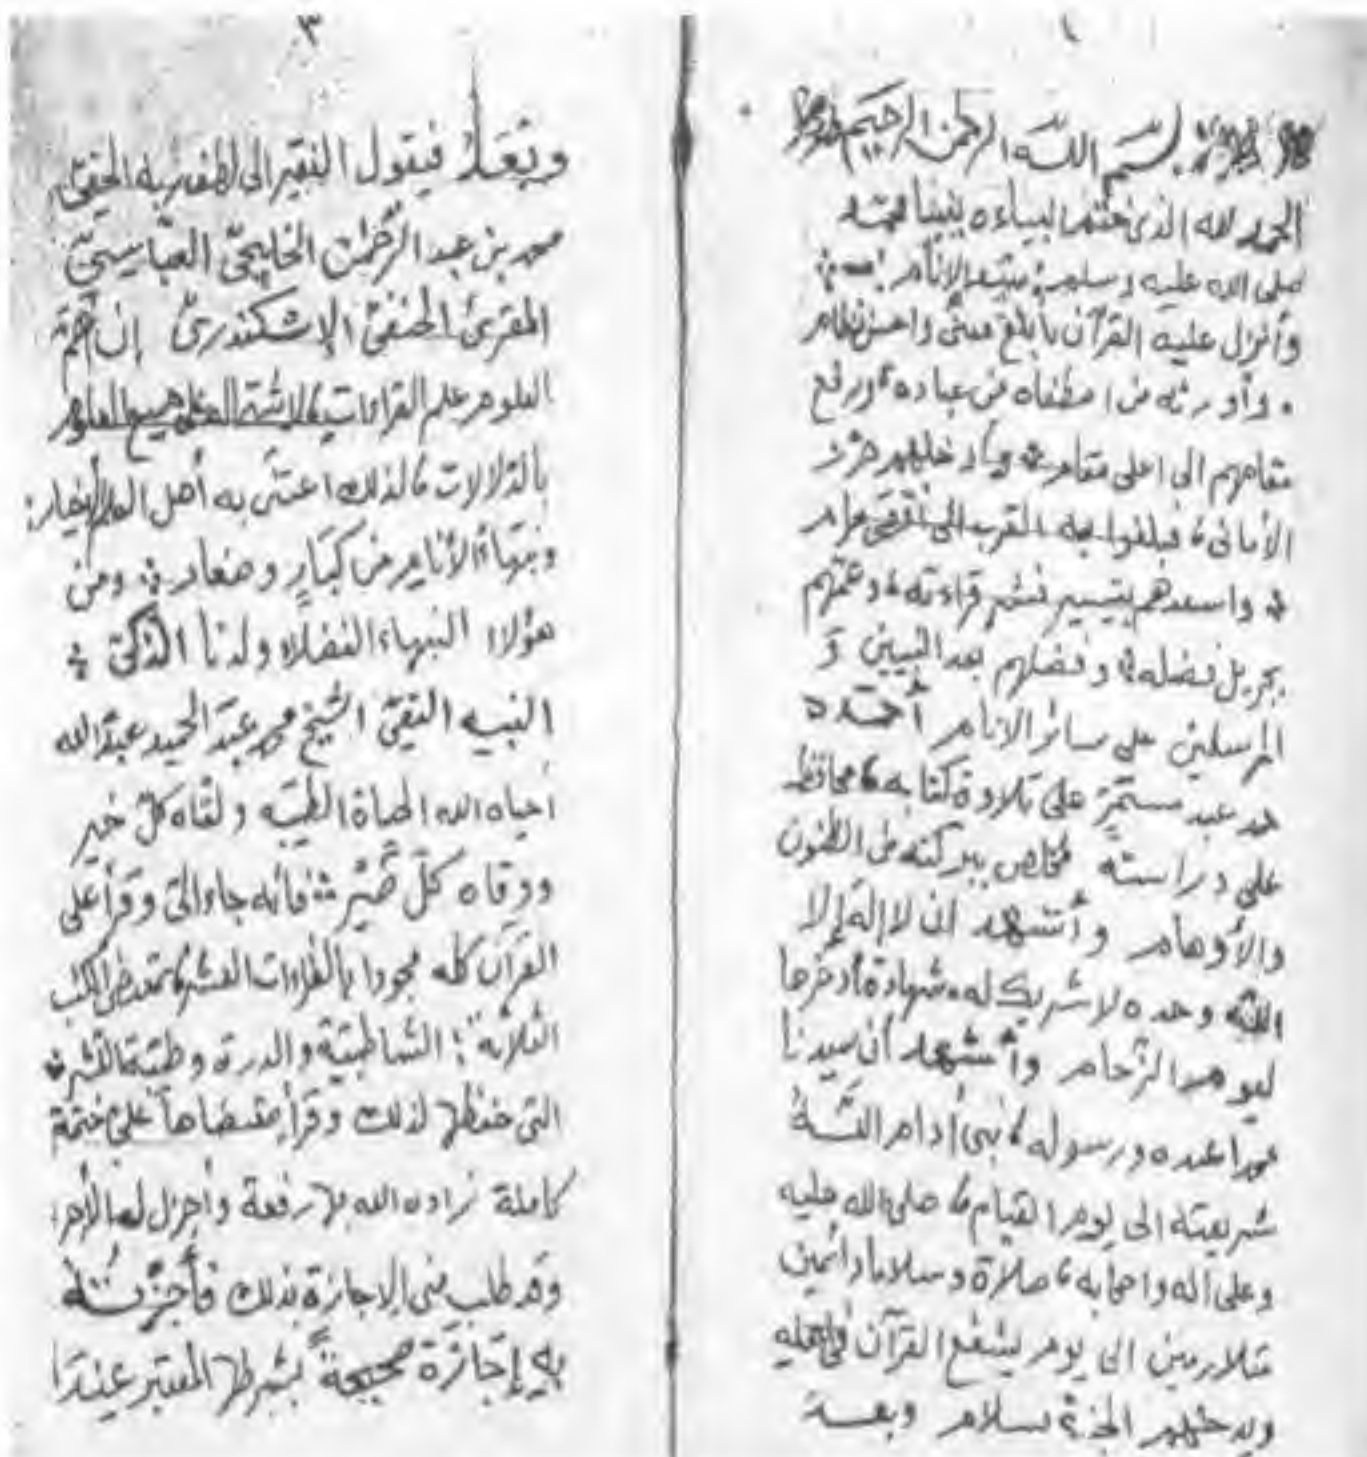 بسم الله الرحمن الرحيم
الحمد لله الذى ختم انبياءه بنبينا محمد
صلى الله عليه وسلم سيد الانام
وأنزل عليه القرآن بأبلغ معنى واحسن نظام
وأورثه من اصطفاه من عباده ورفع
مقامهم الى اعلى مقام حرز
الأمانى فبلغوا به القرب الى أقصى مرام
واسعدهم بتيسير نشر قراءته وعمهم
بجزيل فضله وفضلهم بعد النبيين و
المرسلين على سائر الانام أحمده
حمد عبد مستمر على تلاوة كتابه محافظ
على دراسته مخلص ببركته من الظنون
والأوهام وأشهد ان لا إله إلا
الله وحده لا شريك له شهادة أدخرها
ليوم الزحام وأشهد أن سيدنا
محمدا عبده ورسوله نبى أدام الله
شريعته الى يوم القيام صلى الله عليه
وعلى آله واصحابه صلاة وسلاما دائمين
متلازمين الى يوم يشفع القرآن فى أهله
ويدخلهم الجنة بسلام وبعد
٣
وبعد فيقول الفقير الى لطف ربه الخفى
محمد بن عبد الرحمن الخليجى العباسى
المقرئ الحنفى الإسكندرى إن أهم
العلوم علم القراءات جميع العلوم
بالدلالات لذلك اعتنى به أهل العلم الأخيار
ونبهاء الأنام من كبار وصغار ومن
هؤلاء النبهاء الفضلاء ولدنا الذكى
النبيه التقى الشيخ محمد عبد الحميد عبد الله
أحياه الله الحياة الطيبة ولقاه كل خير
ووقاه كل ضير فأنه جاء الى وقرأ على
القرآن كله مجودا بالقراءات العشر بمقتضى الكتب
الثلاثة الشاطبية والدرة وطيبة النشر
التى حفظها لذلك وقرأ بمقتضاها على ختمة
كاملة زاده الله بها رفعة وأجزل له الأجر
وقد طلب منى الاجازة بذلك فأجزته
به إجازة صحيحة بشرطها المعتبر عندنا